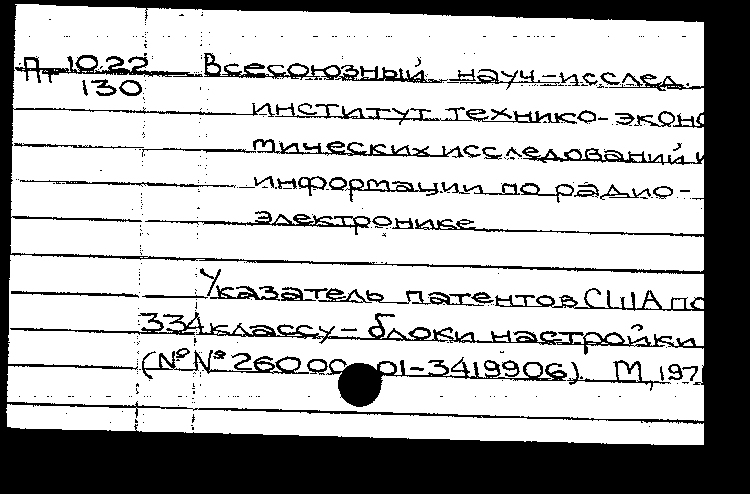 Пт 1022 Всесоюзный науч-исслед.
130
институт технико-эконо
мических исследований и
информации по радио-
электронике
Указатель патентов США по
334 классу - блоки настройки
(№№ 26000 01-3419906). М, 197